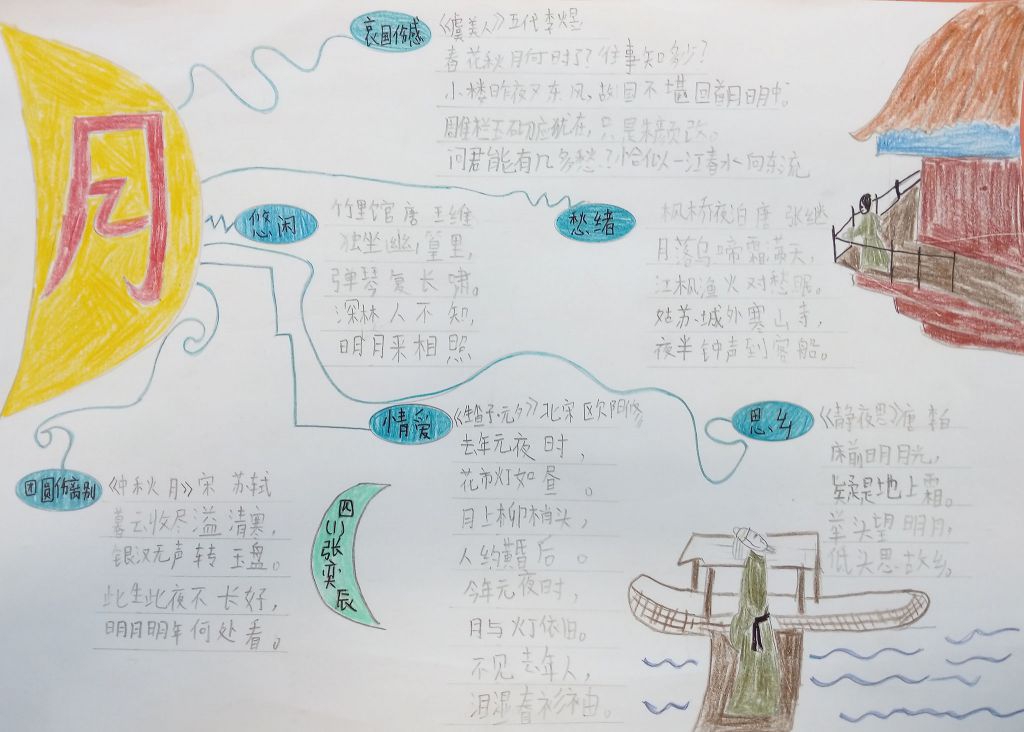 月
哀国伤感
《虞美人》五代李煜
春花秋月何时了?往事知多少?
小楼昨夜又东风,故国不堪回首月明中。
雕栏玉砌应犹在,只是朱颜改。
问君能有几多愁?恰似一江春水向东流
悠闲
竹里馆 唐 王维
独坐幽篁里,
弹琴复长啸。
深林人不知,
明月来相照
愁绪
枫桥夜泊 唐 张继
月落乌啼霜满天,
江枫渔火对愁眠。
姑苏城外寒山寺,
夜半钟声到客船。
情爱
《生查子·元夕》北宋 欧阳修
去年元夜时,
花市灯如昼。
月上柳梢头,
人约黄昏后。
今年元夜时,
月与灯依旧。
不见去年人,
泪湿春衫袖。
思乡
《静夜思》唐 李白
床前明月光,
疑是地上霜。
举头望明月,
低头思故乡。
团圆伤离别
《中秋月》宋 苏轼
暮云收尽溢清寒,
银汉无声转玉盘。
此生此夜不长好,
明月明年何处看。
四(1)张奕辰